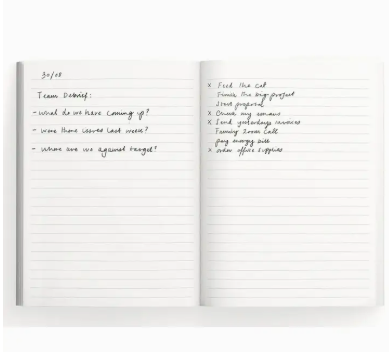 30/08
Team Debrief:
- What do we have coming up?
- were there issues last week?
- where are we against target?
x Feed the cat
Finish the big project
Start proposal
x Check my emails
x Send yesterdays invoices
Family Zoom call
pay energy bill
x order office supplies